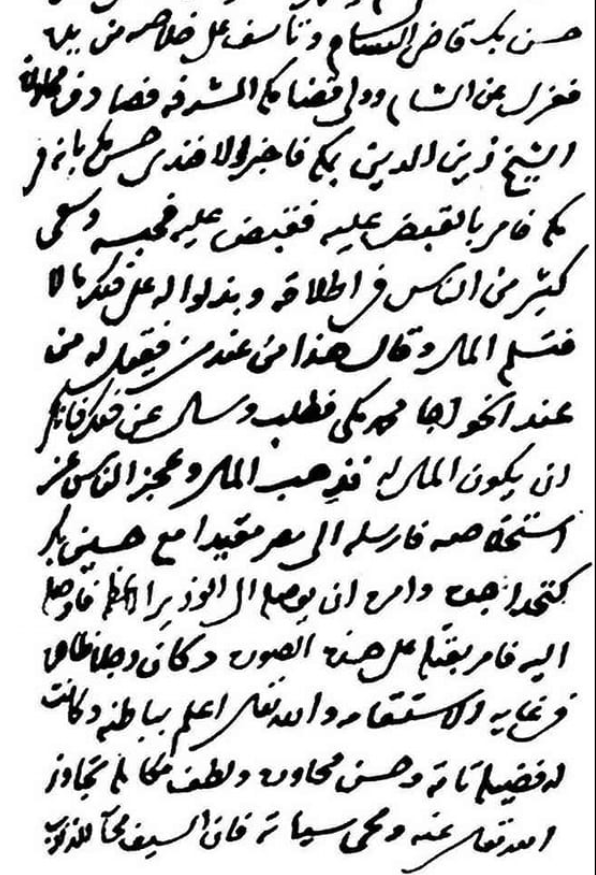 حسن بك قاضى الشام وتأسف على خلاصه من يده
فعزل عن الشام وولى قضا مكة المشرفة فصادف مجاورة
الشيخ زين الدين بمكة فاخبر الافندى حسن بك بانه فى
مكة فامر بالقبض عليه فقبض عليه فحبسه وسعى
كثير من الناس فى اطلاقه وبذلوا له على ذلك مالا
فتسلم المال وقال هذا من عند من فيقول له من
عند الخواجا محمد مكى فطلبه وساله عن ذلك فانكر
ان يكون المال له فذهب المال وعجز الناس عن
استخلاصه فارسله الى مصر مقيدا مع حسين بك
كتخدا جده وامره ان يوصله الى الوزير الاعظم فاوصله
اليه فامر بقتله على هذه الصورة وكان رجلا ظاهره
فى غاية الاستقامه والله تعالى اعلم بباطنه وكانت
له فضيلة تامة وحسن محاورة ولطف مكالمة تجاوز
الله تعالى عنه ومحى سياته فان السيف محاء للذنوب